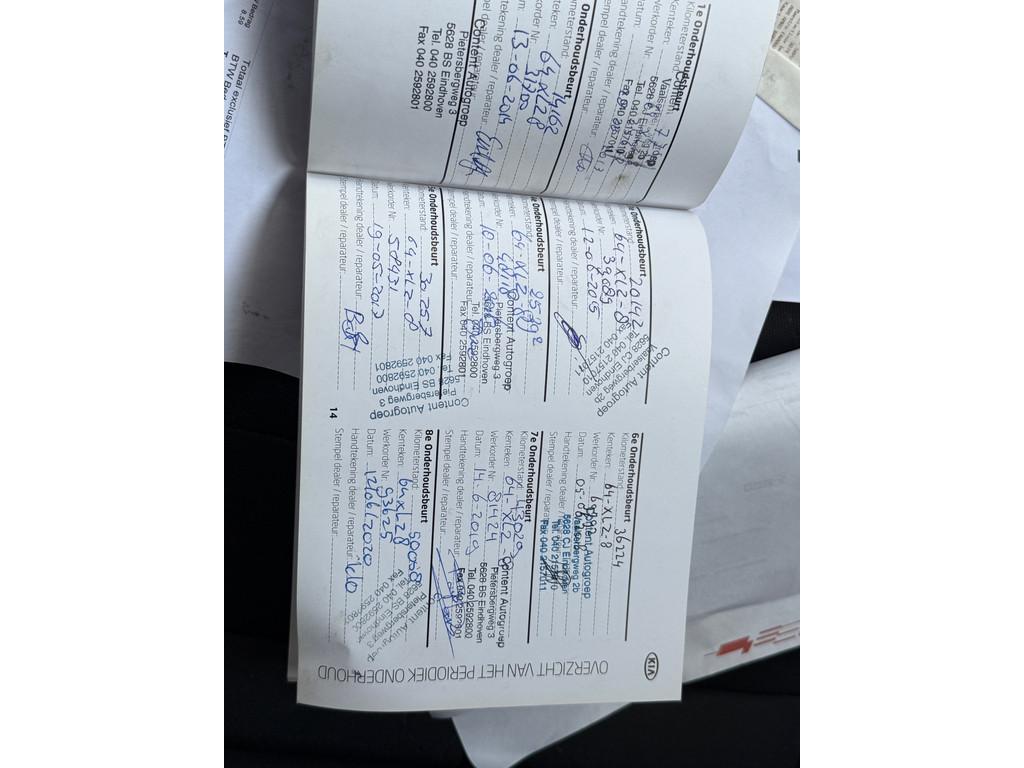 OVERZICHT VAN HET PERIODIEK ONDERHOUD
KIA
1e Onderhoudsbeurt
Kilometerstand:
Kenteken:
Werkorder Nr:
Datum:
Handtekening dealer / reparateur:
Stempel dealer / reparateur:
Onderhoudsbeurt
Kilometerstand: 14162
Kenteken: 64-XLZ-8
Werkorder Nr: 31700
Datum: 13-06-2014
Handtekening dealer / reparateur:
Stempel dealer / reparateur:
Content Autogroep
Pietersbergweg 3
5628 BS Eindhoven
Tel. 040 2592800
Fax 040 2592801
Onderhoudsbeurt
Kilometerstand: 20142
64-XLZ-8
39689
Datum: 12-06-2015
Handtekening dealer / reparateur:
Stempel dealer / reparateur:
Content Autogroep
5628 CJ Eindhoven
Tel. 040 2157010
Fax 040 2157011
Onderhoudsbeurt
Kilometerstand: 25792
Kenteken: 64-XLZ-8
Werkorder Nr:
Datum: 10-06-
Handtekening dealer / reparateur:
Stempel dealer / reparateur:
Content Autogroep
Pietersbergweg 3
5628 BS Eindhoven
Tel. 040 2592800
Fax 040 2592801
Onderhoudsbeurt
Kilometerstand: 30.257
Kenteken: 64-XLZ-8
Werkorder Nr: 58931
Datum: 19-05-2017
Handtekening dealer / reparateur:
Stempel dealer / reparateur:
Content Autogroep
Pietersbergweg 3
5628 BS Eindhoven
Tel. 040 2592800
Fax 040 2592801
14
6e Onderhoudsbeurt
Kilometerstand: 36224
Kenteken: 64-XLZ-8
Werkorder Nr:
Datum:
Handtekening dealer / reparateur:
Stempel dealer / reparateur:
Content Autogroep
5628 CJ Eindhoven
Tel. 040 2157010
Fax 040 2157011
7e Onderhoudsbeurt
Kilometerstand: 43029
Kenteken: 64-XLZ-8
Werkorder Nr: 81424
Datum: 14-6-2019
Handtekening dealer / reparateur:
Stempel dealer / reparateur:
Content Autogroep
Pietersbergweg 3
5628 BS Eindhoven
Tel. 040 2592800
Fax 040 2592801
8e Onderhoudsbeurt
Kilometerstand: 50058
Kenteken: 64XLZ8
Werkorder Nr: 93625
Datum: 12/06/2020
Handtekening dealer / reparateur:
Stempel dealer / reparateur:
Content Autogroep
Pietersbergweg 3
5628 BS Eindhoven
Tel. 040 2592800
Fax 040 2592801
Bedrag
8,50
Totaal exclusief